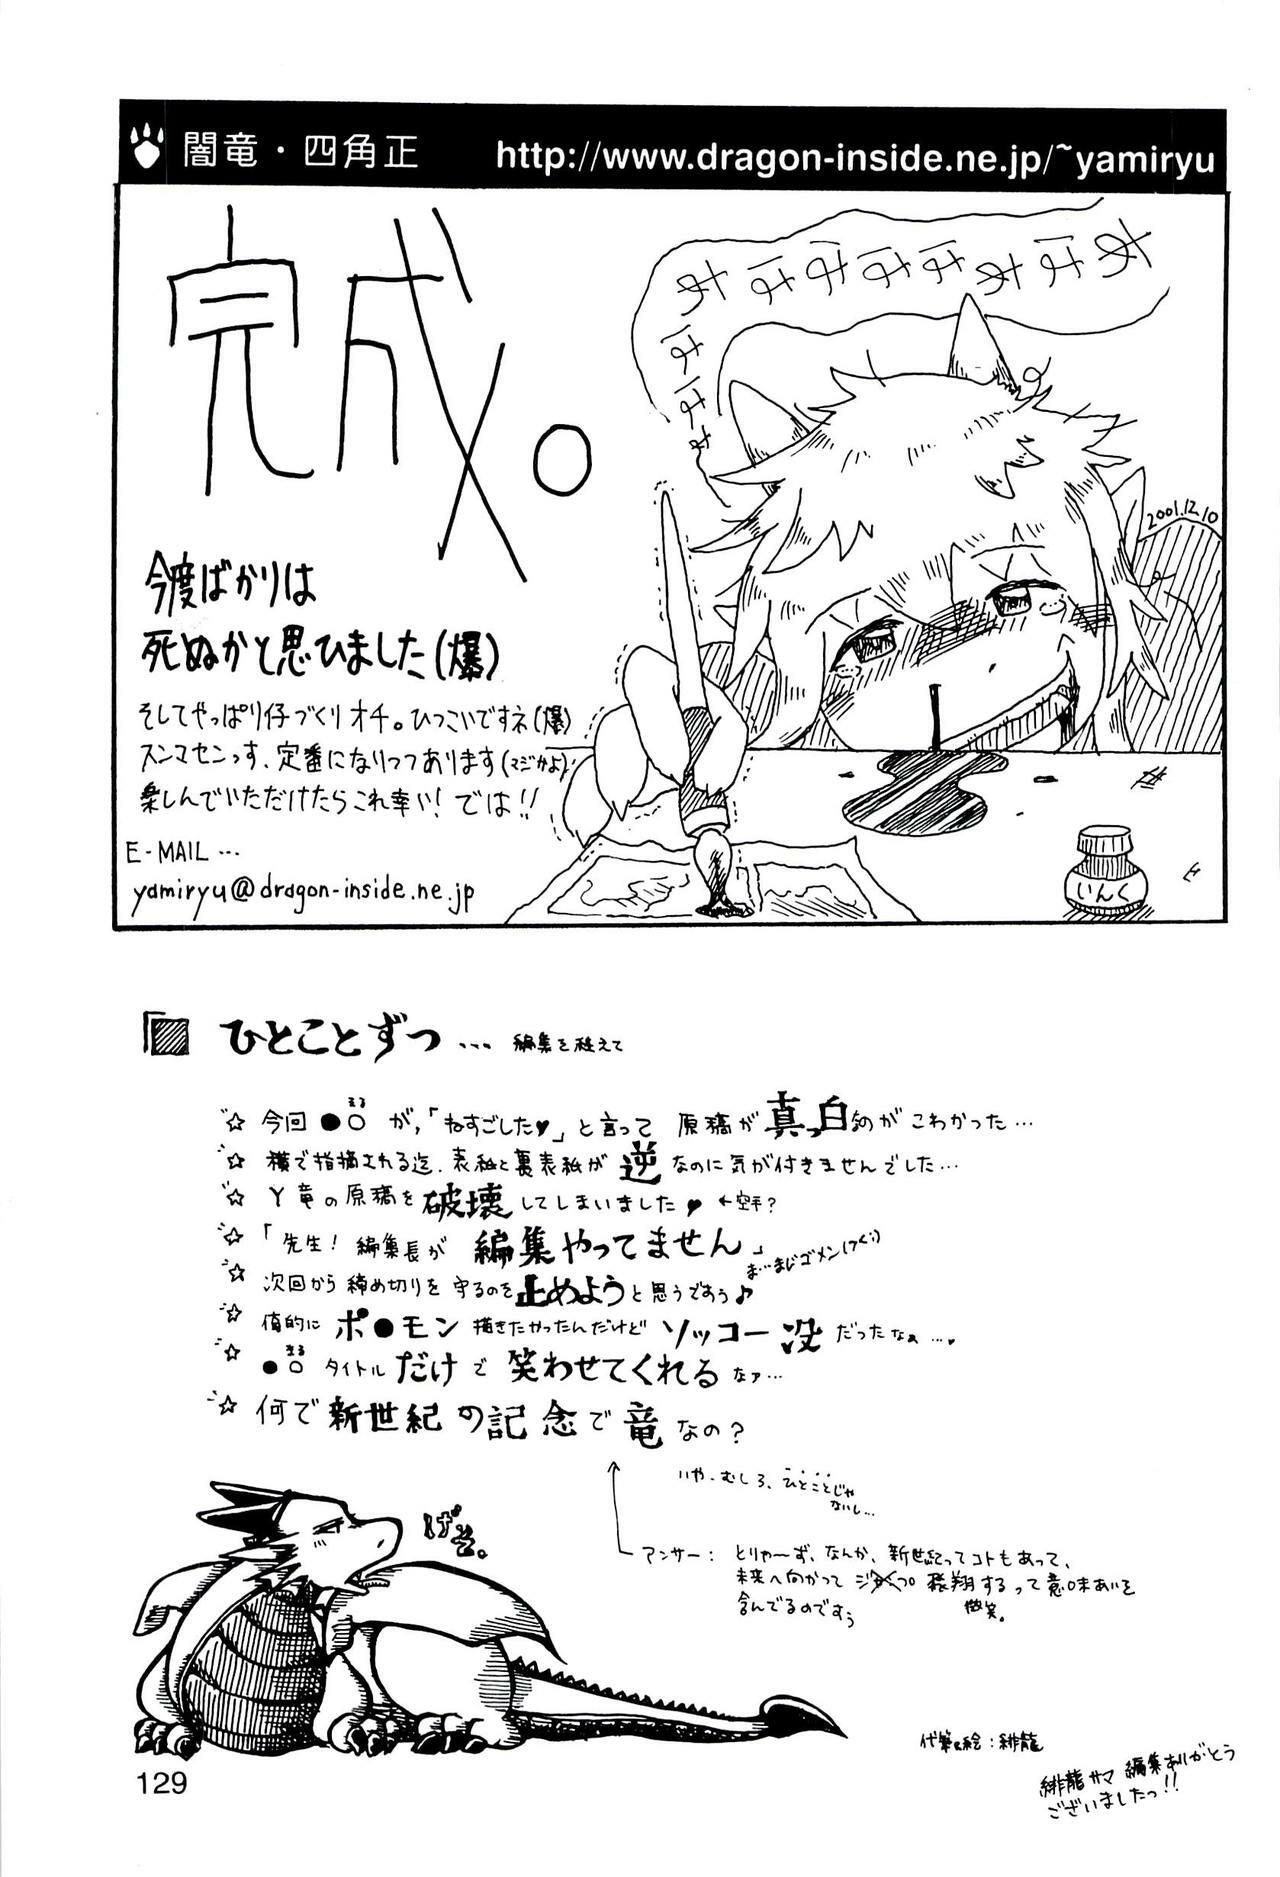 闇竜・四角正 http://www.dragon-inside.ne.jp/~yamiryu
完成。
あははああははははああははは
2001.12.10
今度ばかりは
死ぬかと思ひました(爆)
そしてやっぱり仔づくりオチ。ひつこいですネ(爆)
スンマセンっす、定番になりつつあります(マジかよ)
楽しんでいただけたらこれ幸い! では!!
E-MAIL…
yamiryu@dragon-inside.ne.jp
いんく
ひとことずつ … 編集を終えて
☆ 今回●○が、「ねすごした♥」と言って 原稿が真っ白なのが こわかった…
☆ 横で指摘される迄、表紙と裏表紙が 逆 なのに気が付きませんでした…
☆ Y竜の原稿を 破壊 してしまいました♥ ←空手?
☆ 「先生! 編集長が 編集やってません」
ま…まじゴメン
☆ 次回から締め切りを守るのを止めようと思うであう♪
☆ 値的に ポ●モン 描きたかったんだけど ソッコー没 だったなぁ…
☆ ●○ タイトル だけ で 笑わせてくれる なァ…
まる
☆ 何で 新世紀の記念で 竜 なの?
いや、むしろ、ひとことじゃ
ないし…
げそ。
アンサー: とりゃ〜ず、なんか、新世紀ってコトもあって、
未来へ向かって 飛翔するって意味あいを
含んでるのですぅ
微笑。
代筆&絵:緋龍
緋龍サマ 編集ありがとう
ございましたっ!!
129